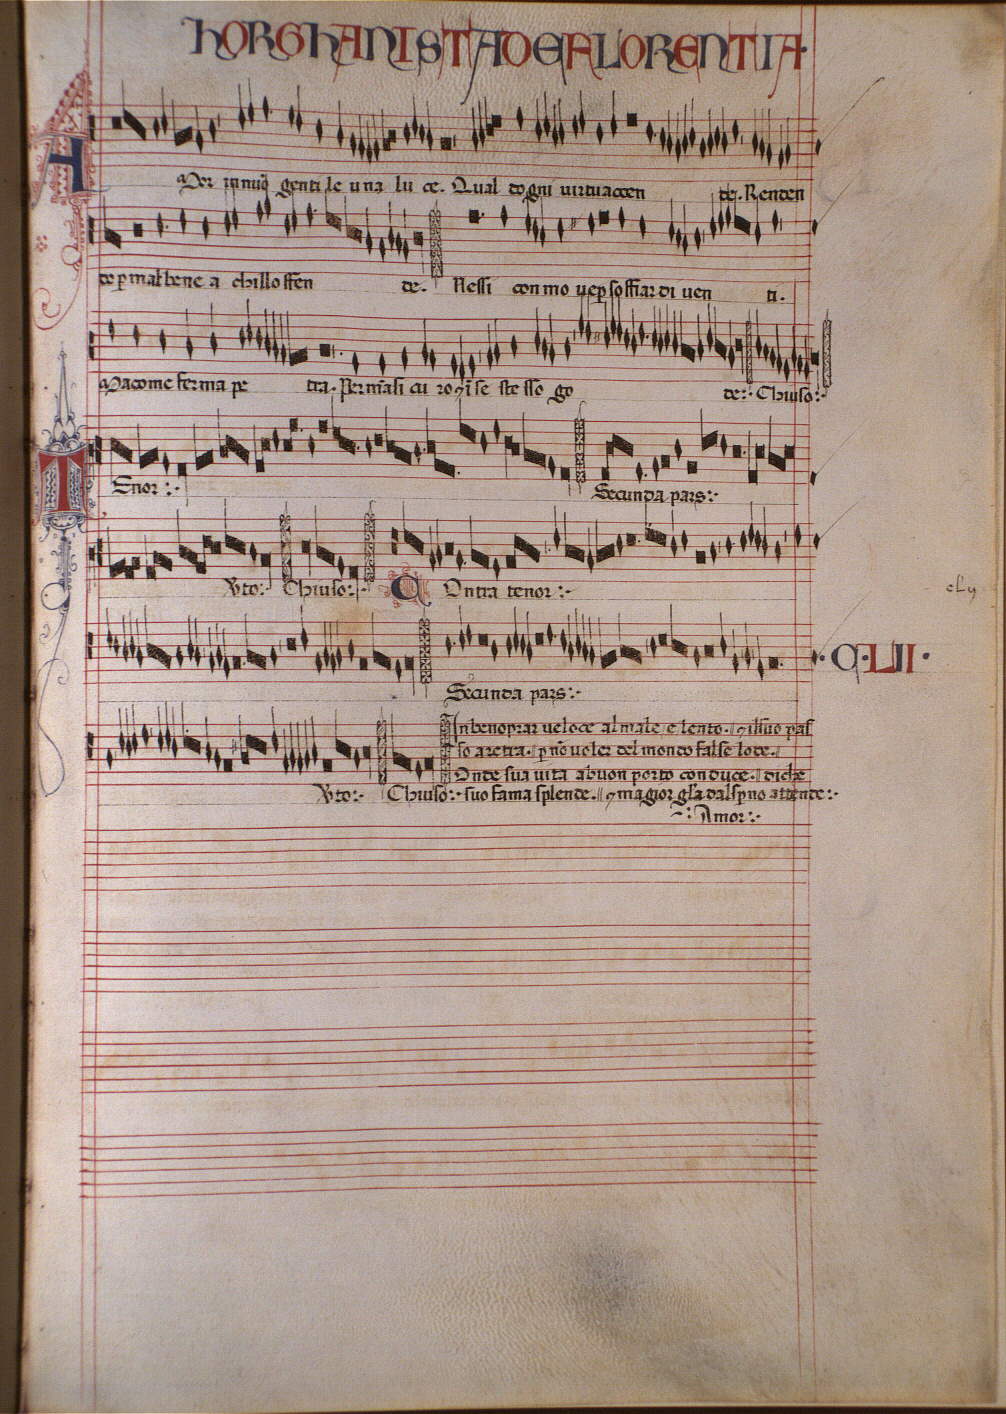 HORGHANISTA DE FLORENTIA
AMor in huō gentile una lu ce. Qual dogni uirtu accen de. Renden
de p mal bene a chillo ffen de. Nessi con mo uep so ffiar di uen ti.
Ma come ferma pe tra. Per ma si cu ro se ste sso go de:· Chiuso:·
TEnor:· Secunda pars:·
Vto: Chiuso:· COntra tenor:·
·C·LII·
Secunda pars:·
In ben oprar ueloce al male e lento. illsuo pas
so aretra. p nō uoler del mondo false lode.
Onde sua uita a buon porto conduce. diche
Vto:· Chiuso:· suo fama splende. magior gl'a dal spno attende:·
Amor:·